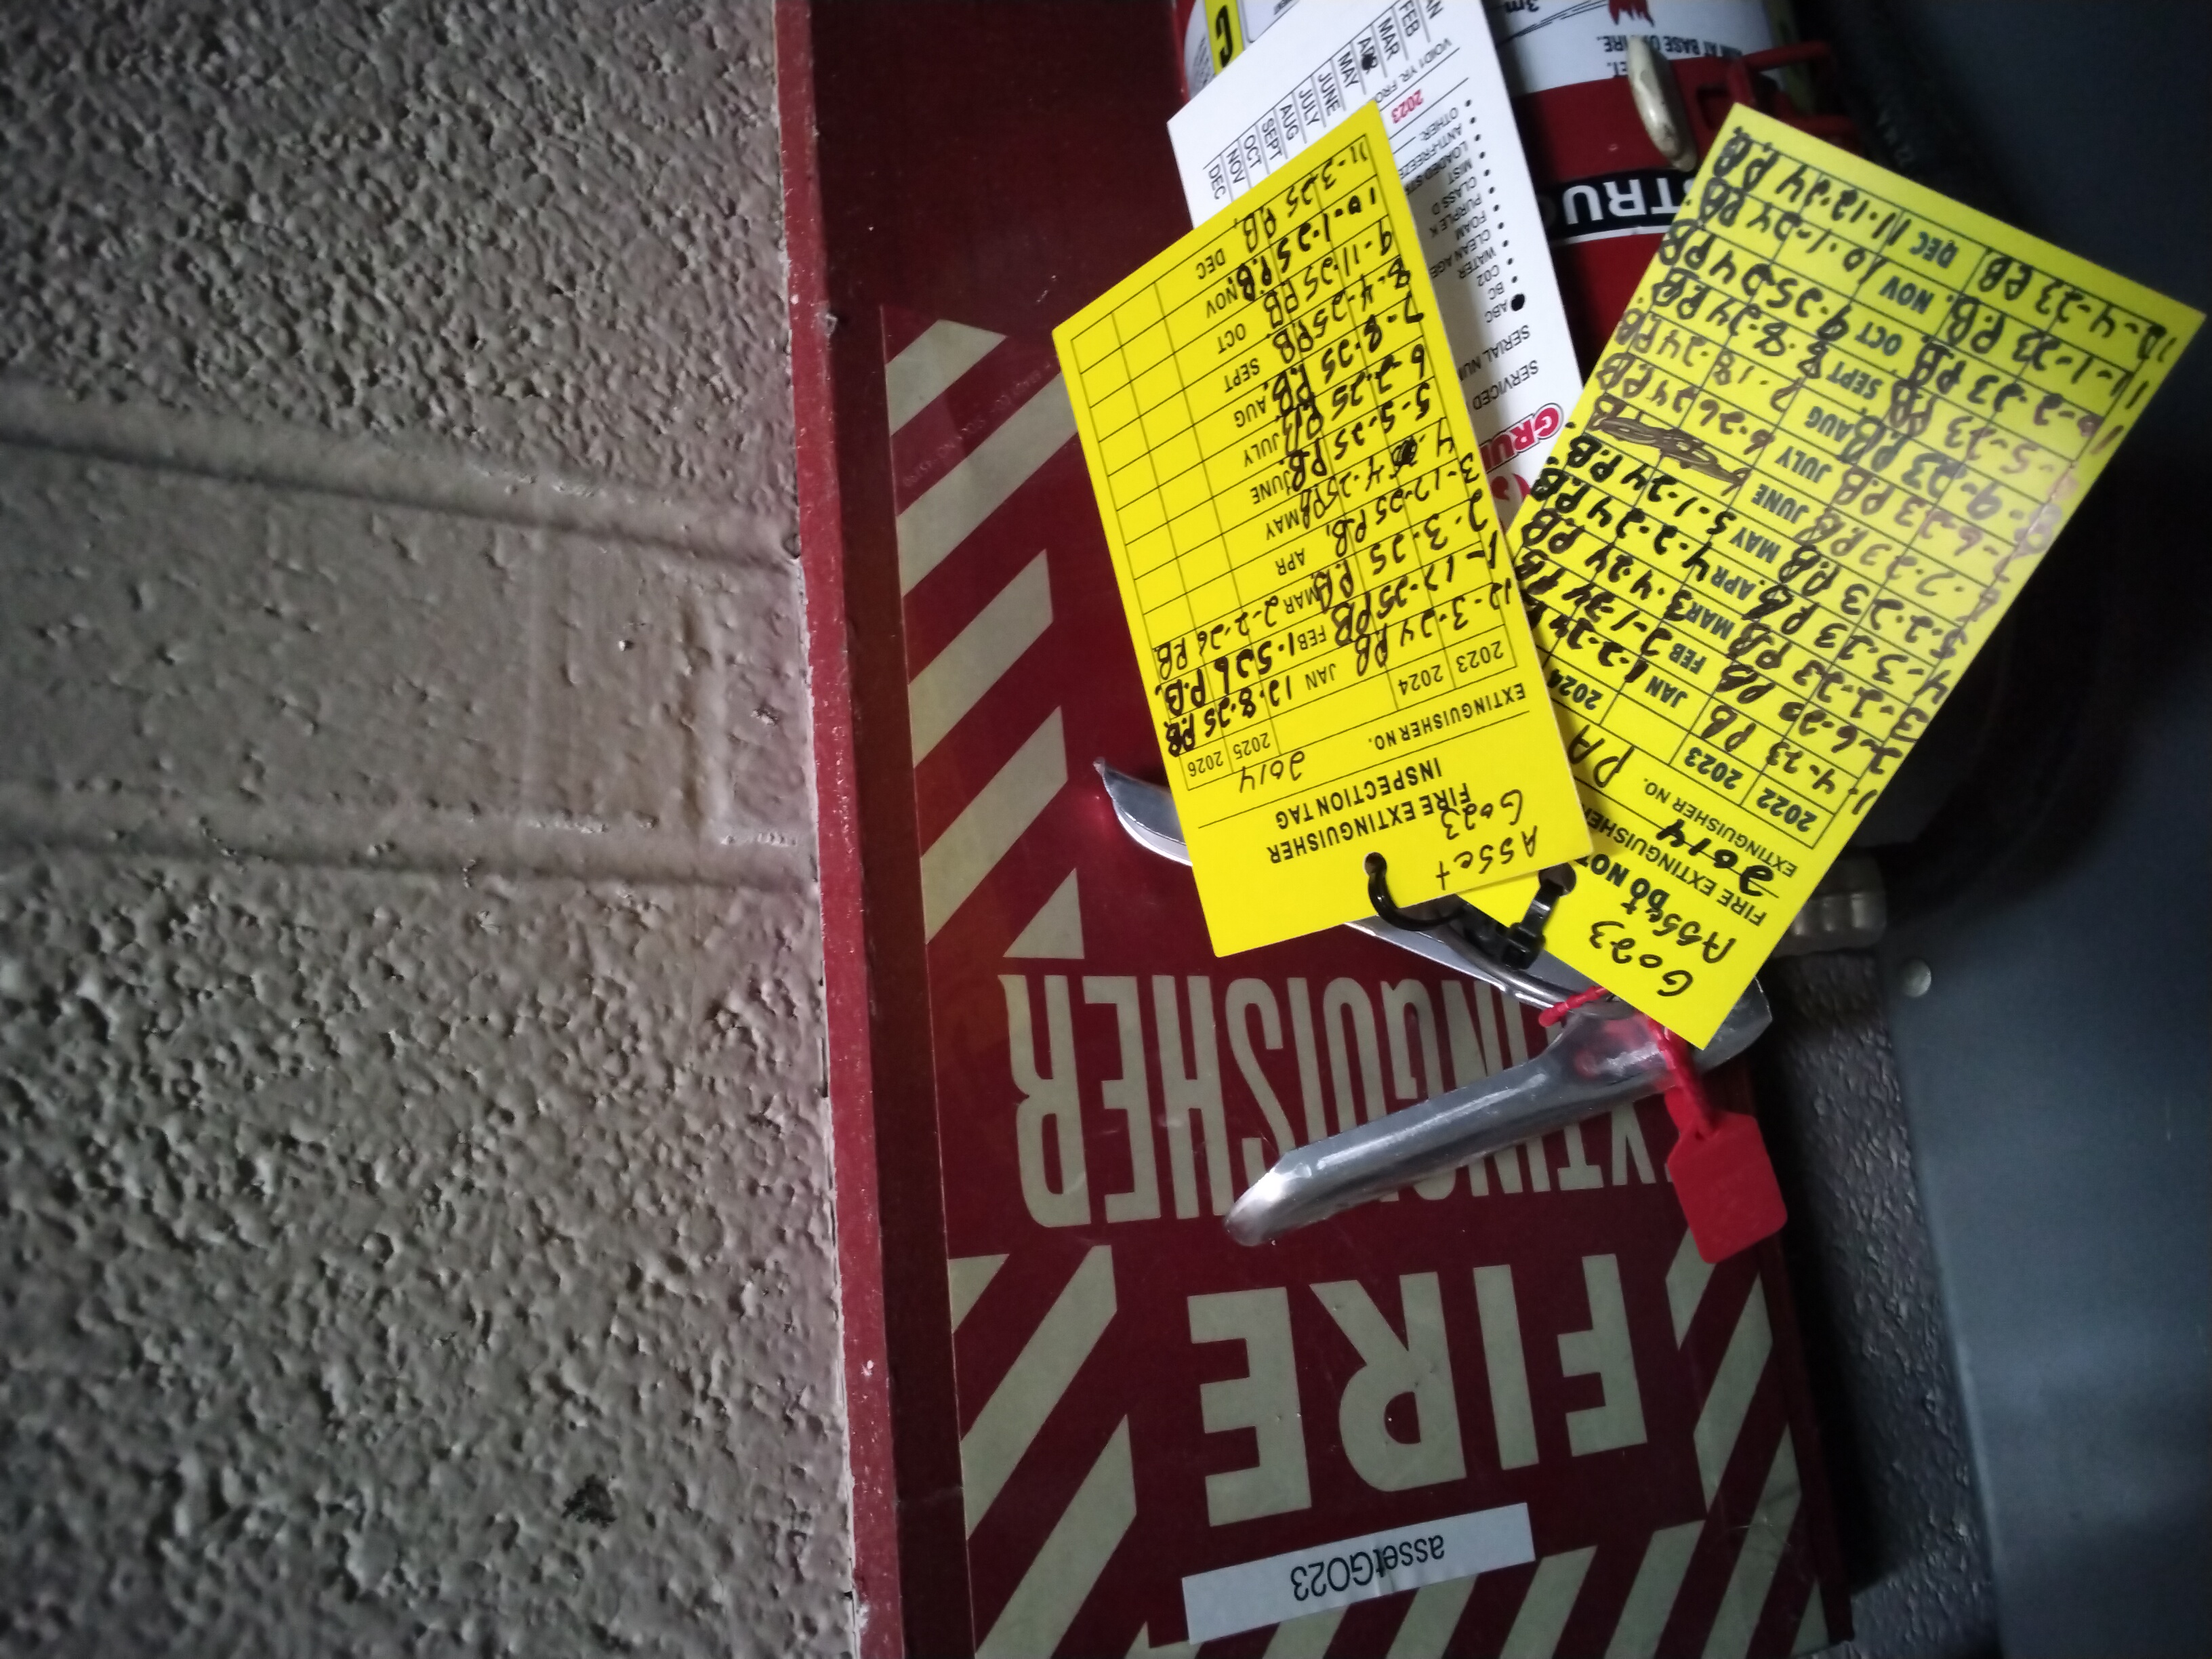 assetGO23
FIRE
EXTINGUISHER
Asset
G023
FIRE EXTINGUISHER
INSPECTION TAG
2614
EXTINGUISHER NO.
2023 2024 2025 2026
12-3-24 P.B JAN 12-8-25 P.B.
1-17-25 P.B FEB 1-5-26 P.B.
2-3-25 P.B MAR 2-2-26 P.B.
3-17-25 P.B. APR
4-25 P.B MAY
5-5-25 P.B. JUNE
6-2-25 P.B. JULY
7-8-25 P.B. AUG
8-4-25 P.B SEPT
9-11-25 P.B OCT
10-1-25 P.B. NOV
11-3-25 P.B. DEC
G023
Asset
DO NOT
FIRE EXTINGUISHER
2614 PA
EXTINGUISHER NO.
2022 2023 2024
1-4-23 P.B JAN 1-2-24
2-6-23 P.B FEB 2-1-24 P.B
3-2-23 P.B MAR 3-4-24 P.B
4-3-23 P.B APR 4-2-24 P.B.
5-2-23 P.B MAY 5-1-24 P.B.
P.B JUNE
7-6-23 P.B JULY 6-26-24 P.B
8-9-23 P.B. AUG 7-18-24 P.B.
5-23 P.B SEPT 8-8-24 P.B
10-2-23 P.B OCT 9-25-24 P.B
11-1-23 P.B. NOV 10-1-24 P.B.
12-4-23 P.B DEC 11-12-24 P.B.
GRU
SERVICED
SERIAL NUM
ABC
BC
C02
WATER
CLEAN AGE
FOAM
PURPLE K
CLASS D
MIST
LOADED STR
ANTI-FREEZE
OTHER:
2023
VOID 1 YR. FRO
FEB
MAR
APR
MAY
JUNE
JULY
AUG
SEPT
OCT
NOV
DEC
STRUC
AIM AT BASE OF FIRE.
3m
C